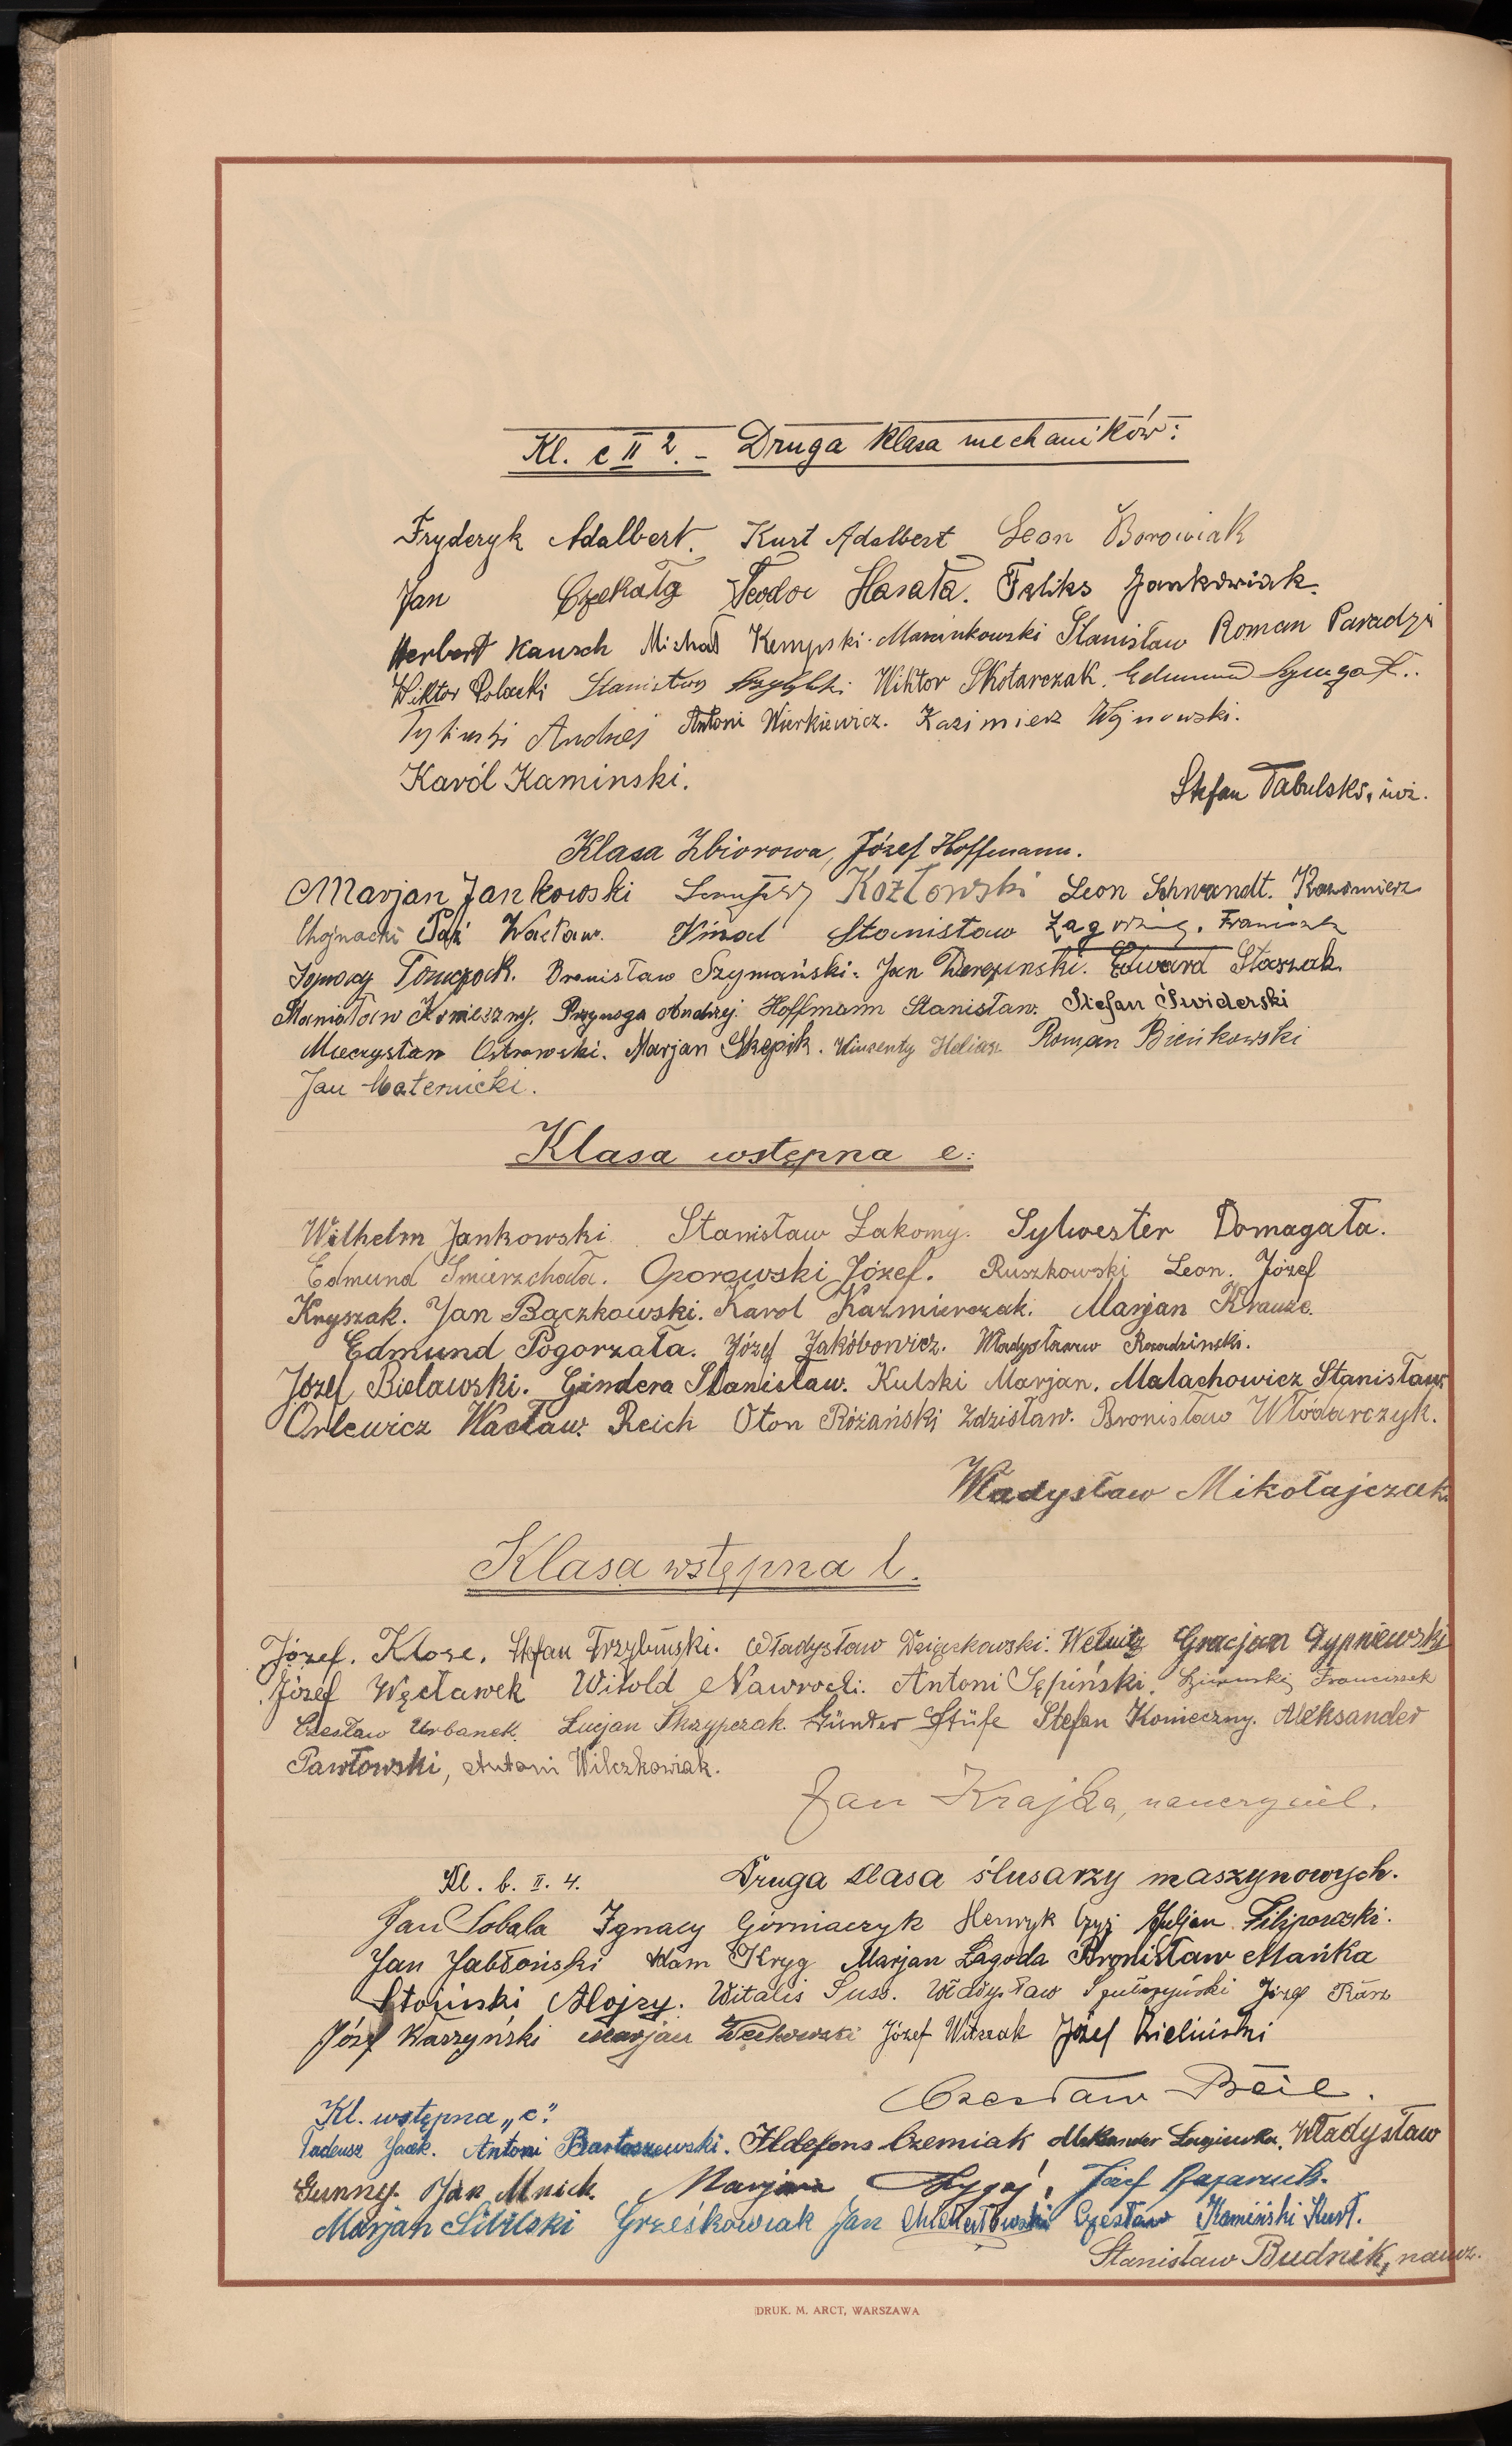 Kl. c II 2. – Druga klasa mechaników:
Fryderyk Adalbert. Kurt Adalbert Leon Borowiak
Jan Czekała Teodor Hasała. Feliks Jankowiak.
Herbert Kausch Michał Kempski. Marcinkowski Stanisław Roman Paradzi
Wiktor Polacki Stanisław Wiktor Skotarczak. Edmund
Andrzej Antoni Wierkiewicz. Kazimierz Wojnowski.
Karól Kaminski.
Stefan Tabulski, inż.
Klasa Zbiorowa, Józef Hoffmann.
Marjan Jankowski Kozłowski Leon Schwandt. Kazimierz
Chojnacki Wacław. Stanisław Franciszek
Ignacy Tomczak. Bronisław Szymański. Jan Derezinski. Edward Staszak.
Stanisław Konieczny. Przynoga Andrzej. Hoffmann Stanisław. Stefan Świderski
Mieczysław Ostrowski. Marjan Skępik. Wincenty Heliasz Roman Bieńkowski
Jan Maternicki.
Klasa wstępna e:
Wilhelm Jankowski. Stanisław Łakomy. Sylwester Domagała.
Edmund Smierzchała. Oporowski Józef. Ruszkowski Leon. Józef
Kryszak. Jan Bączkowski. Karol Kazmierczak. Marjan Krauze.
Edmund Pogorzała. Józef Jakóbowicz. Władysław Rozadzinski.
Józef Bielawski. Gindera Stanisław. Kulski Marjan. Malachowicz Stanisław
Orlewicz Wacław. Reich Oton Różański Zdzisław. Bronisław Włodarczyk.
Władysław Mikołajczak
Klasa wstępna l.
Józef. Klose. Stefan Trzybiński. Władysław Dzięczkowski. Welnitz Gracjan Gypniewski
Józef Węcławek Witold Nawrocki. Antoni Sępiński. Franciszek
Czesław Urbanek. Lucjan Skrzypczak. Günter Stüfe Stefan Konieczny. Aleksander
Pawłowski, Antoni Wilczkowiak.
Jan Krajka, nauczyciel.
Kl. b. II. 4. Druga klasa ślusarzy maszynowych.
Jan Sobala Ignacy Górniaczyk Henryk Czyż Juljan Filipowski.
Jan Jabłoński Adam Kryg Marjan Łagoda Bronisław Mańka
Stoiński Alojzy. Witalis Suss. Władysław Józef
Józef Warzyński Marjan Wechowski Józef Witczak Józef Zieliński
Czesław Beil.
Kl. wstępna „c”.
Tadeusz Jacek. Antoni Bartoszewski. Ildefons Czemiak Aleksander Władysław
Gunney. Jan Mnich. Marjan Józef
Marjan Sibilski Grześkowiak Jan Czesław Kamiński Kurt.
Stanisław Budnik, naucz.
DRUK. M. ARCT, WARSZAWA